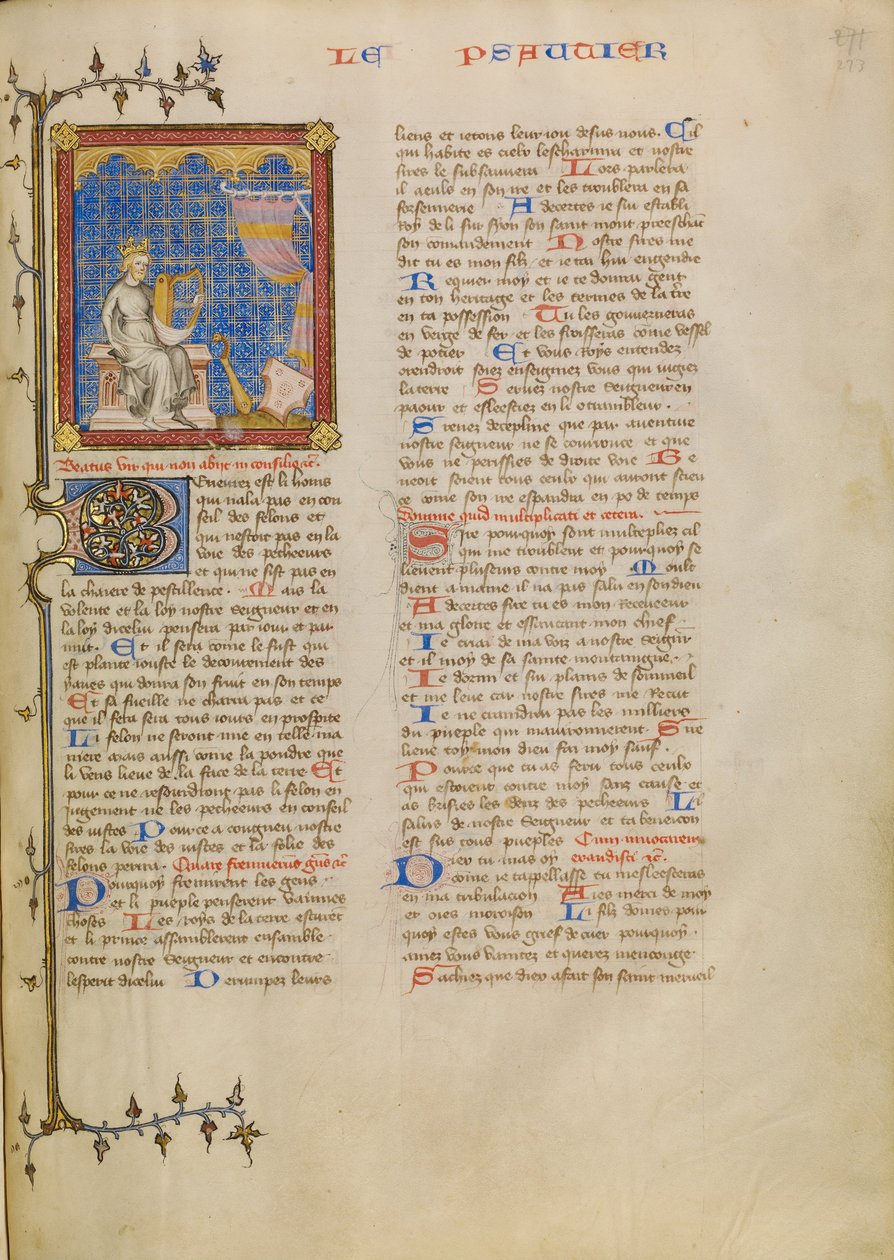 LE PSAUTIER
271
273
Beatus vir qui non abijt in consilio &c.
Beneurez est li homs
qui nala pas en con
seil des felons et
qui nestoit pas en la
voie des pecheeurs
et qui ne sist pas en
la chaiere de pestillence. Mais la
volente et la loy nostre Seigneur et en
la loy dicelui pensera par iour et par
nuit. Et il sera come le fust qui
est plante iouste le decourement des
yaues qui donra son fruit en son temps
Et sa fueille ne charra pas et ce
que il fera sera tous iours en prosperite
Li felon ne seront mie en telle ma
niere mais aussi come la poudre que
li vens lieue de la face de la terre Et
pour ce ne resourdront pas li felon en
Jugement ne les pecheeurs en conseil
des iustes Pour ce a congneu nostre
sires la voie des iustes et la folie des
felons perira. Quare fremuerunt gentes &c
Pourquoy fremirent les gens
et li pueple penserent vainnes
choses Les roys de la terre esturent
et li prince assamblerent ensamble
contre nostre Seigneur et encontre
lesperit dicelui Derumpez leurs
liens et ietons leur iou desus nous. Cil
qui habite es cielx lescharnira et nostre
sires le subsannera Lors parlera
il a euls en son ire et les troublera en sa
forsennerie Adecertes ie sui establi
Roy de li sur syon son saint mont preeschant
son comandement Nostre sires me
dit tu es mon filz et ie tai hui engendre
Requier moy et ie te donrai gent
en ton heritage et les termes de la terre
en ta possession Tu les gouverneras
en verge de fer et les froisseras come vessel
de potier Et vous Roys entendez
orendroit soiez enseigniez vous qui iugiez
la terre Servez nostre Seigneur en
paour et esleesciez en li et trambleur.
Prenez decepline que par aventure
nostre seigneur ne se courrouce et que
vous ne perissies de droite voie Be
neoit soient tous ceulx qui auront fiance
ce come son ire espandra en po de temps
Domine quid multiplicati et cetera.
Sire pourquoy sont multepliez cil
qui me troublent et pourquoy se
lievent plusieurs contre moy Moult
dient a mame il na pas salu en son dieu
Adecertes sire tu es mon Receveeur
et ma gloire et essaucant mon chief
Je criai de ma voiz a nostre Seigneur
et il moy de sa sainte montaigne.
Je dormi et sui plains de sommeil
et me leve car nostre sires me Recut
Je ne craindrai pas les milliers
du pueple qui mavironnerent Sire
lieve toy mon dieu fai moy sauf.
Pource que tu as feru tous ceulx
qui estoient contre moy sanz cause et
as brisies les denz des pecheeurs Li
salus de nostre Seigneur et ta beneicon
est sus tous pueples Cum invocarem
Diex tu mas oy exaudisti &c.
come ie tappellasse tu mesleesceras
en ma tribulacion Aies merci de moy
et oies moroison Li filz domes pour
quoy estes vous grief de cuer pourquoy
amez vous vanitez et querez menconge
Sachiez que diex a fait son saint merveil